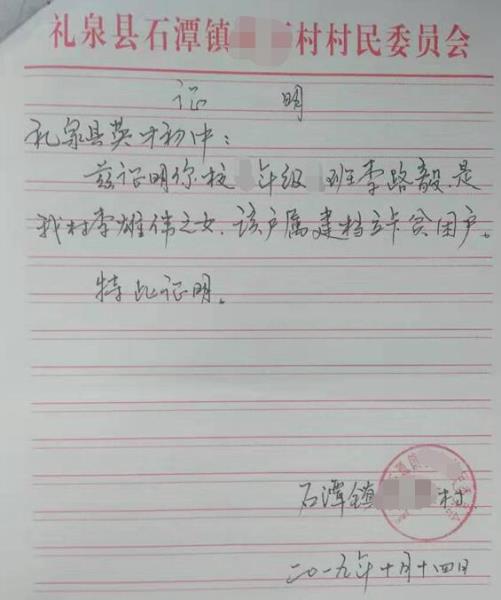 礼泉县石潭镇 村村民委员会
证 明
礼泉县英才初中：
兹证明你校 年级 班李路毅是
我村李雄伟之女，该户属建档立卡贫困户。
特此证明。
石潭镇 村
二〇一九年十月十四日